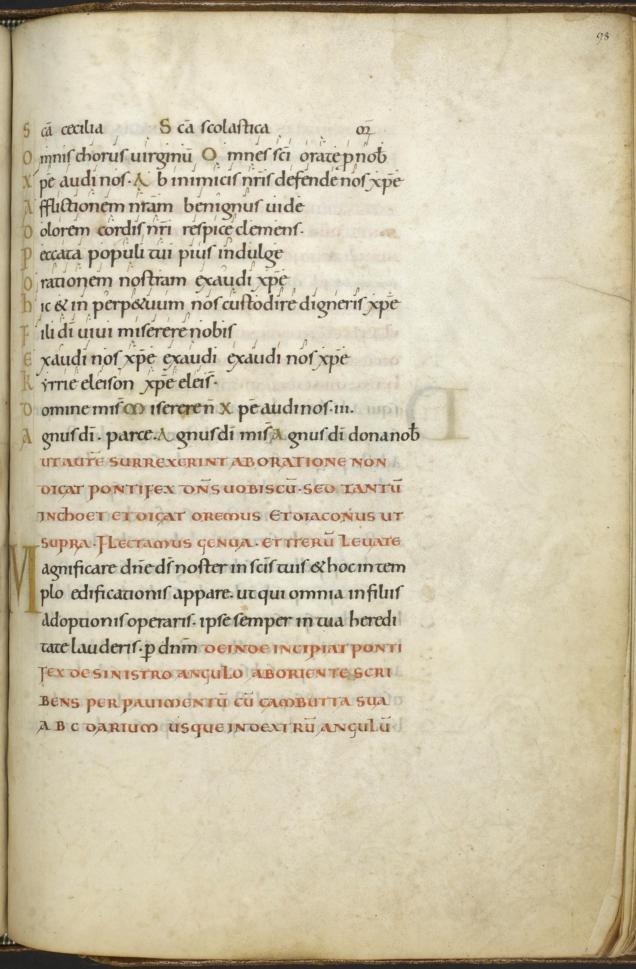 98
Scã cecilia Scã scolastica or̃
Omnis chorus virginũ Omnes sc̃i orate p nob̃
Xpẽ audi nos· Ab inimicis nr̃is defende nos xpẽ
Afflictionem nr̃am benignus uide
Dolorem cordis nr̃i respice clemens·
Peccata populi tui pius indulge
Orationem nostram exaudi xpẽ
Hic & in perp&uum nos custodire digneris xpẽ
Fili dĩ uiui miserere nobis
Exaudi nos xpẽ exaudi exaudi nos xpẽ
Kyrrie eleison xpẽ eleis̃·
Domine mis̃ Miserere ñ Xpẽ audi nos· iii.
Agnus dĩ· parce· Agnus dĩ mis̃ Agnus dĩ dona nob̃
UT AUTẼ SURREXERINT AB ORATIONE NON
DICAT PONTIFEX DÑS UOBISCŨ· SED TANTŨ
INCHOET ET DICAT OREMUS ET DIACONUS UT
SUPRA· FLECTAMUS GENUA· ET ITERŨ LEUATE
Magnificare dñe dš noster in scĩs tuis & hoc in tem
plo edificationis appare· ut qui omnia in filiis
adoptionis operaris· ipse semper in tua heredi
tate lauderis· p̃ dnm̃ DEINDE INCIPIAT PONTI
FEX DE SINISTRO ANGULO AB ORIENTE SCRI
BENS PER PAUIMENTŨ CŨ CAMBUTTA SUA
A B C DARIUM USQUE IN DEXTRŨ ANGULŨ